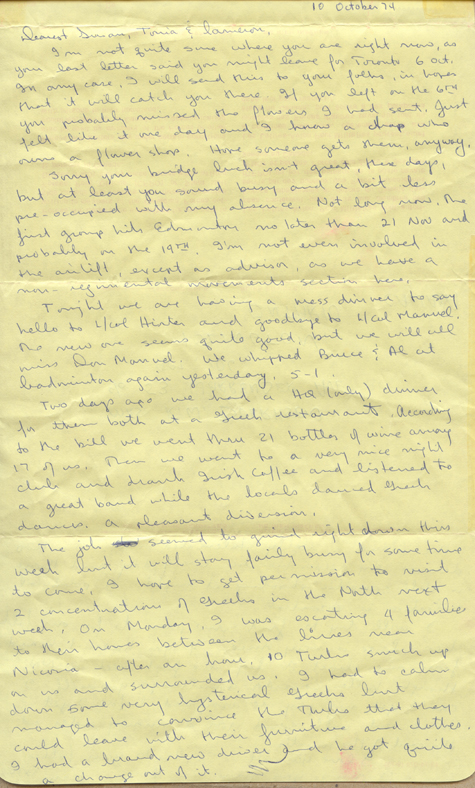 10 October 74
Dearest Susan, Tonia & Cameron,
I'm not quite sure where you are right now, as
your last letter said you might leave for Toronto 6 Oct.
In any case, I will send this to your folks, in hopes
that it will catch you there. If you left on the 6TH
you probably missed the flowers I had sent. Just
felt like it one day and I know a chap who
owns a flower shop. Hope someone gets them, anyway.
Sorry your bridge luck isn't great, these days,
but at least you sound busy and a bit less
pre-occupied with my absence. Not long now, the
first group hits Edmonton no later than 21 Nov and
probably on the 19TH. I'm not even involved in
the airlift, except as advisor, as we have a
non-regimental movements section here.
Tonight we are having a mess dinner to say
hello to L/Col Hester and goodbye to L/Col Manuel.
The new one seems quite good, but we will all
miss Don Manuel. We whipped Bruce & Al at
badminton again yesterday. 5-1.
Two days ago we had a HQ (only) dinner
for them both at a Greek restaurant. According
to the bill we went thru 21 bottles of wine among
17 of us. Then we went to a very nice night
club and drank Irish Coffee and listened to
a great band while the locals danced Greek
dances. A pleasant diversion.
The job seemed to grind right down this
week but it will stay fairly busy for some time
to come. I hope to get permission to visit
2 concentrations of Greeks in the North next
week. On Monday, I was escorting 4 families
to their homes between the lines near
Nicosia - after an hour, 10 Turks snuck up
on us and surrounded us. I had to calm
down some very hysterical Greeks but
managed to convince the Turks that they
could leave with their furniture and clothes.
I had a brand new driver and he got quite
a charge out of it.